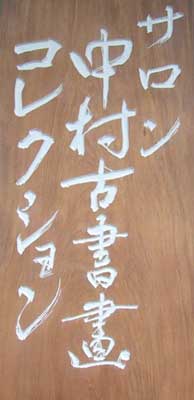 サロン
中村古書畫
コレクション